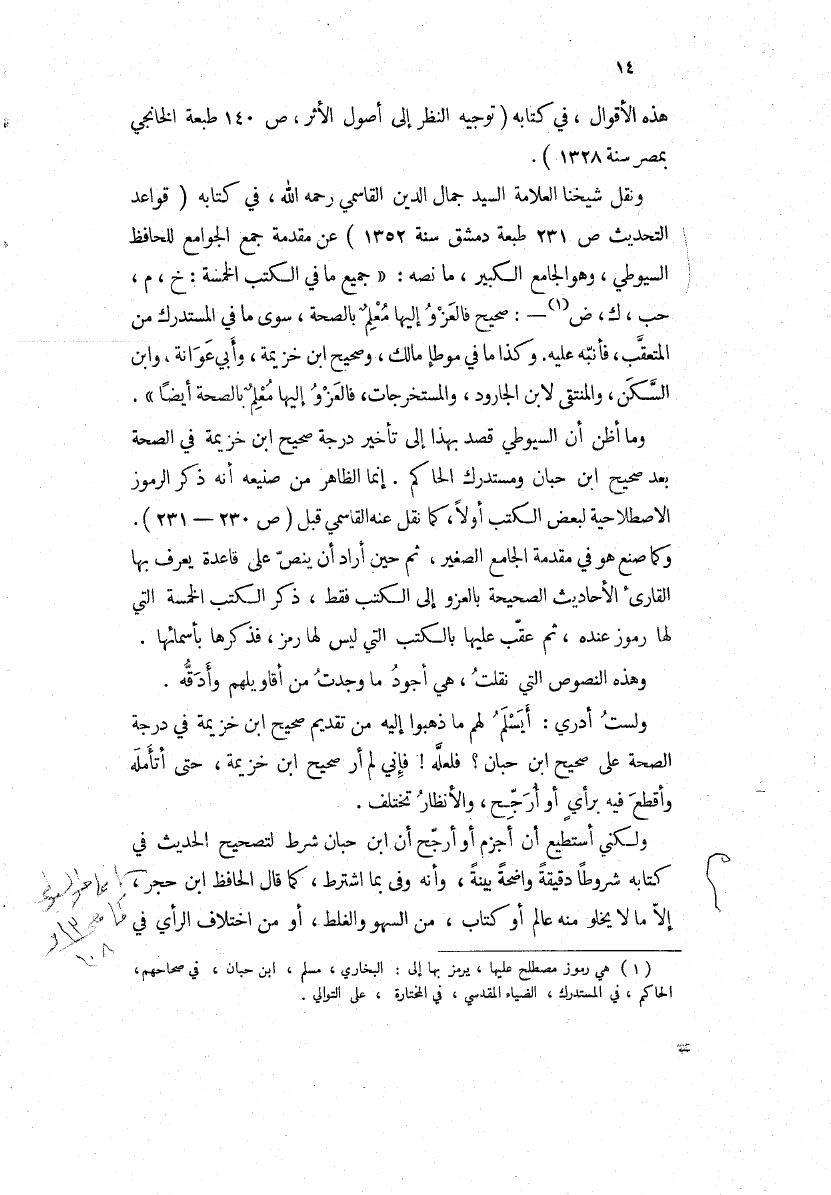 ١٤
هذه الأقوال ، في كتابه ( توجيه النظر إلى أصول الأثر ، ص ١٤٠ طبعة الخانجي
بمصر سنة ١٣٢٨ ) .
ونقل شيخنا العلامة السيد جمال الدين القاسمي رحمه الله ، في كتابه ( قواعد
التحديث ص ٢٣١ طبعة دمشق سنة ١٣٥٢ ) عن مقدمة جمع الجوامع للحافظ
السيوطي ، وهو الجامع الكبير ، ما نصه : « جميع ما في الكتب الخمسة : خ ، م ،
حب ، ك ، ض (١) — : صحيح فالعَزْوُ إليها مُعْلِمٌ بالصحة ، سوى ما في المستدرك من
المتعقَّب ، فأنبّه عليه. وكذا ما في موطإ مالك ، وصحيح ابن خزيمة ، وأبي عَوَانة ، وابن
السَّكَن ، والمنتقى لابن الجارود ، والمستخرجات ، فالعَزْوُ إليها مُعْلِمٌ بالصحة أيضًا » .
وما أظن أن السيوطي قصد بهذا إلى تأخير درجة صحيح ابن خزيمة في الصحة
بعد صحيح ابن حبان ومستدرك الحاكم . إنما الظاهر من صنيعه أنه ذكر الرموز
الاصطلاحية لبعض الكتب أولاً ، كما نقل عنه القاسمي قبل ( ص ٢٣٠ — ٢٣١ ) .
وكما صنع هو في مقدمة الجامع الصغير ، ثم حين أراد أن ينصّ على قاعدة يعرف بها
القارئ الأحاديث الصحيحة بالعزو إلى الكتب فقط ، ذكر الكتب الخمسة التي
لها رموز عنده ، ثم عقّب عليها بالكتب التي ليس لها رمز ، فذكرها بأسمائها .
وهذه النصوص التي نقلتُ ، هي أجودُ ما وجدتُ من أقاويلهم وأَدَقُّه .
ولستُ أدري : أَيَسْلَمُ لهم ما ذهبوا إليه من تقديم صحيح ابن خزيمة في درجة
الصحة على صحيح ابن حبان ؟ فلعلَّه ! فإِني لم أر صحيح ابن خزيمة ، حتى أتأملَه
وأقطعَ فيه برأيٍ أو أُرَجِّح ، والأنظارُ تختلف .
ولكني أستطيع أن أجزم أو أرجّح أن ابن حبان شرط لتصحيح الحديث في
كتابه شروطًا دقيقةً واضحةً بينةً ، وأنه وفى بما اشترط ، كما قال الحافظ ابن حجر ،
إلاّ ما لا يخلو منه عالم أو كتاب ، من السهو والغلط ، أو من اختلاف الرأي في
(١) هي رموز مصطلح عليها ، يرمز بها إلى : البخاري ، مسلم ، ابن حبان ، في صحاحهم ،
الحاكم ، في المستدرك ، الضياء المقدسي ، في المختارة ، على التوالي .